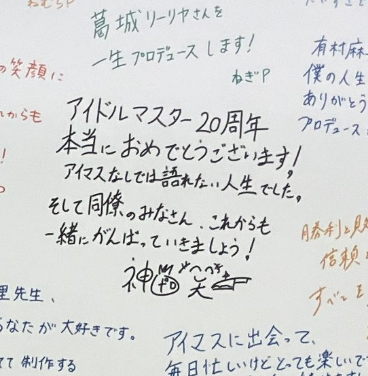 ねむらP
葛城リーリヤさんを
一生プロデュースします!
ねぎP
の笑顔に
れからも
有村麻
僕の人生
ありがとう
プロデュース
アイドルマスター20周年
本当におめでとうございます!
アイマスなしでは語れない人生でした。
そして同僚のみなさん、これからも
一緒にがんばっていきましょう!
勝利と
信頼
すべてを
里先生、
なたが大好きです。
て制作する
アイマスに出会って、
毎日忙しいけどとっても楽しいで